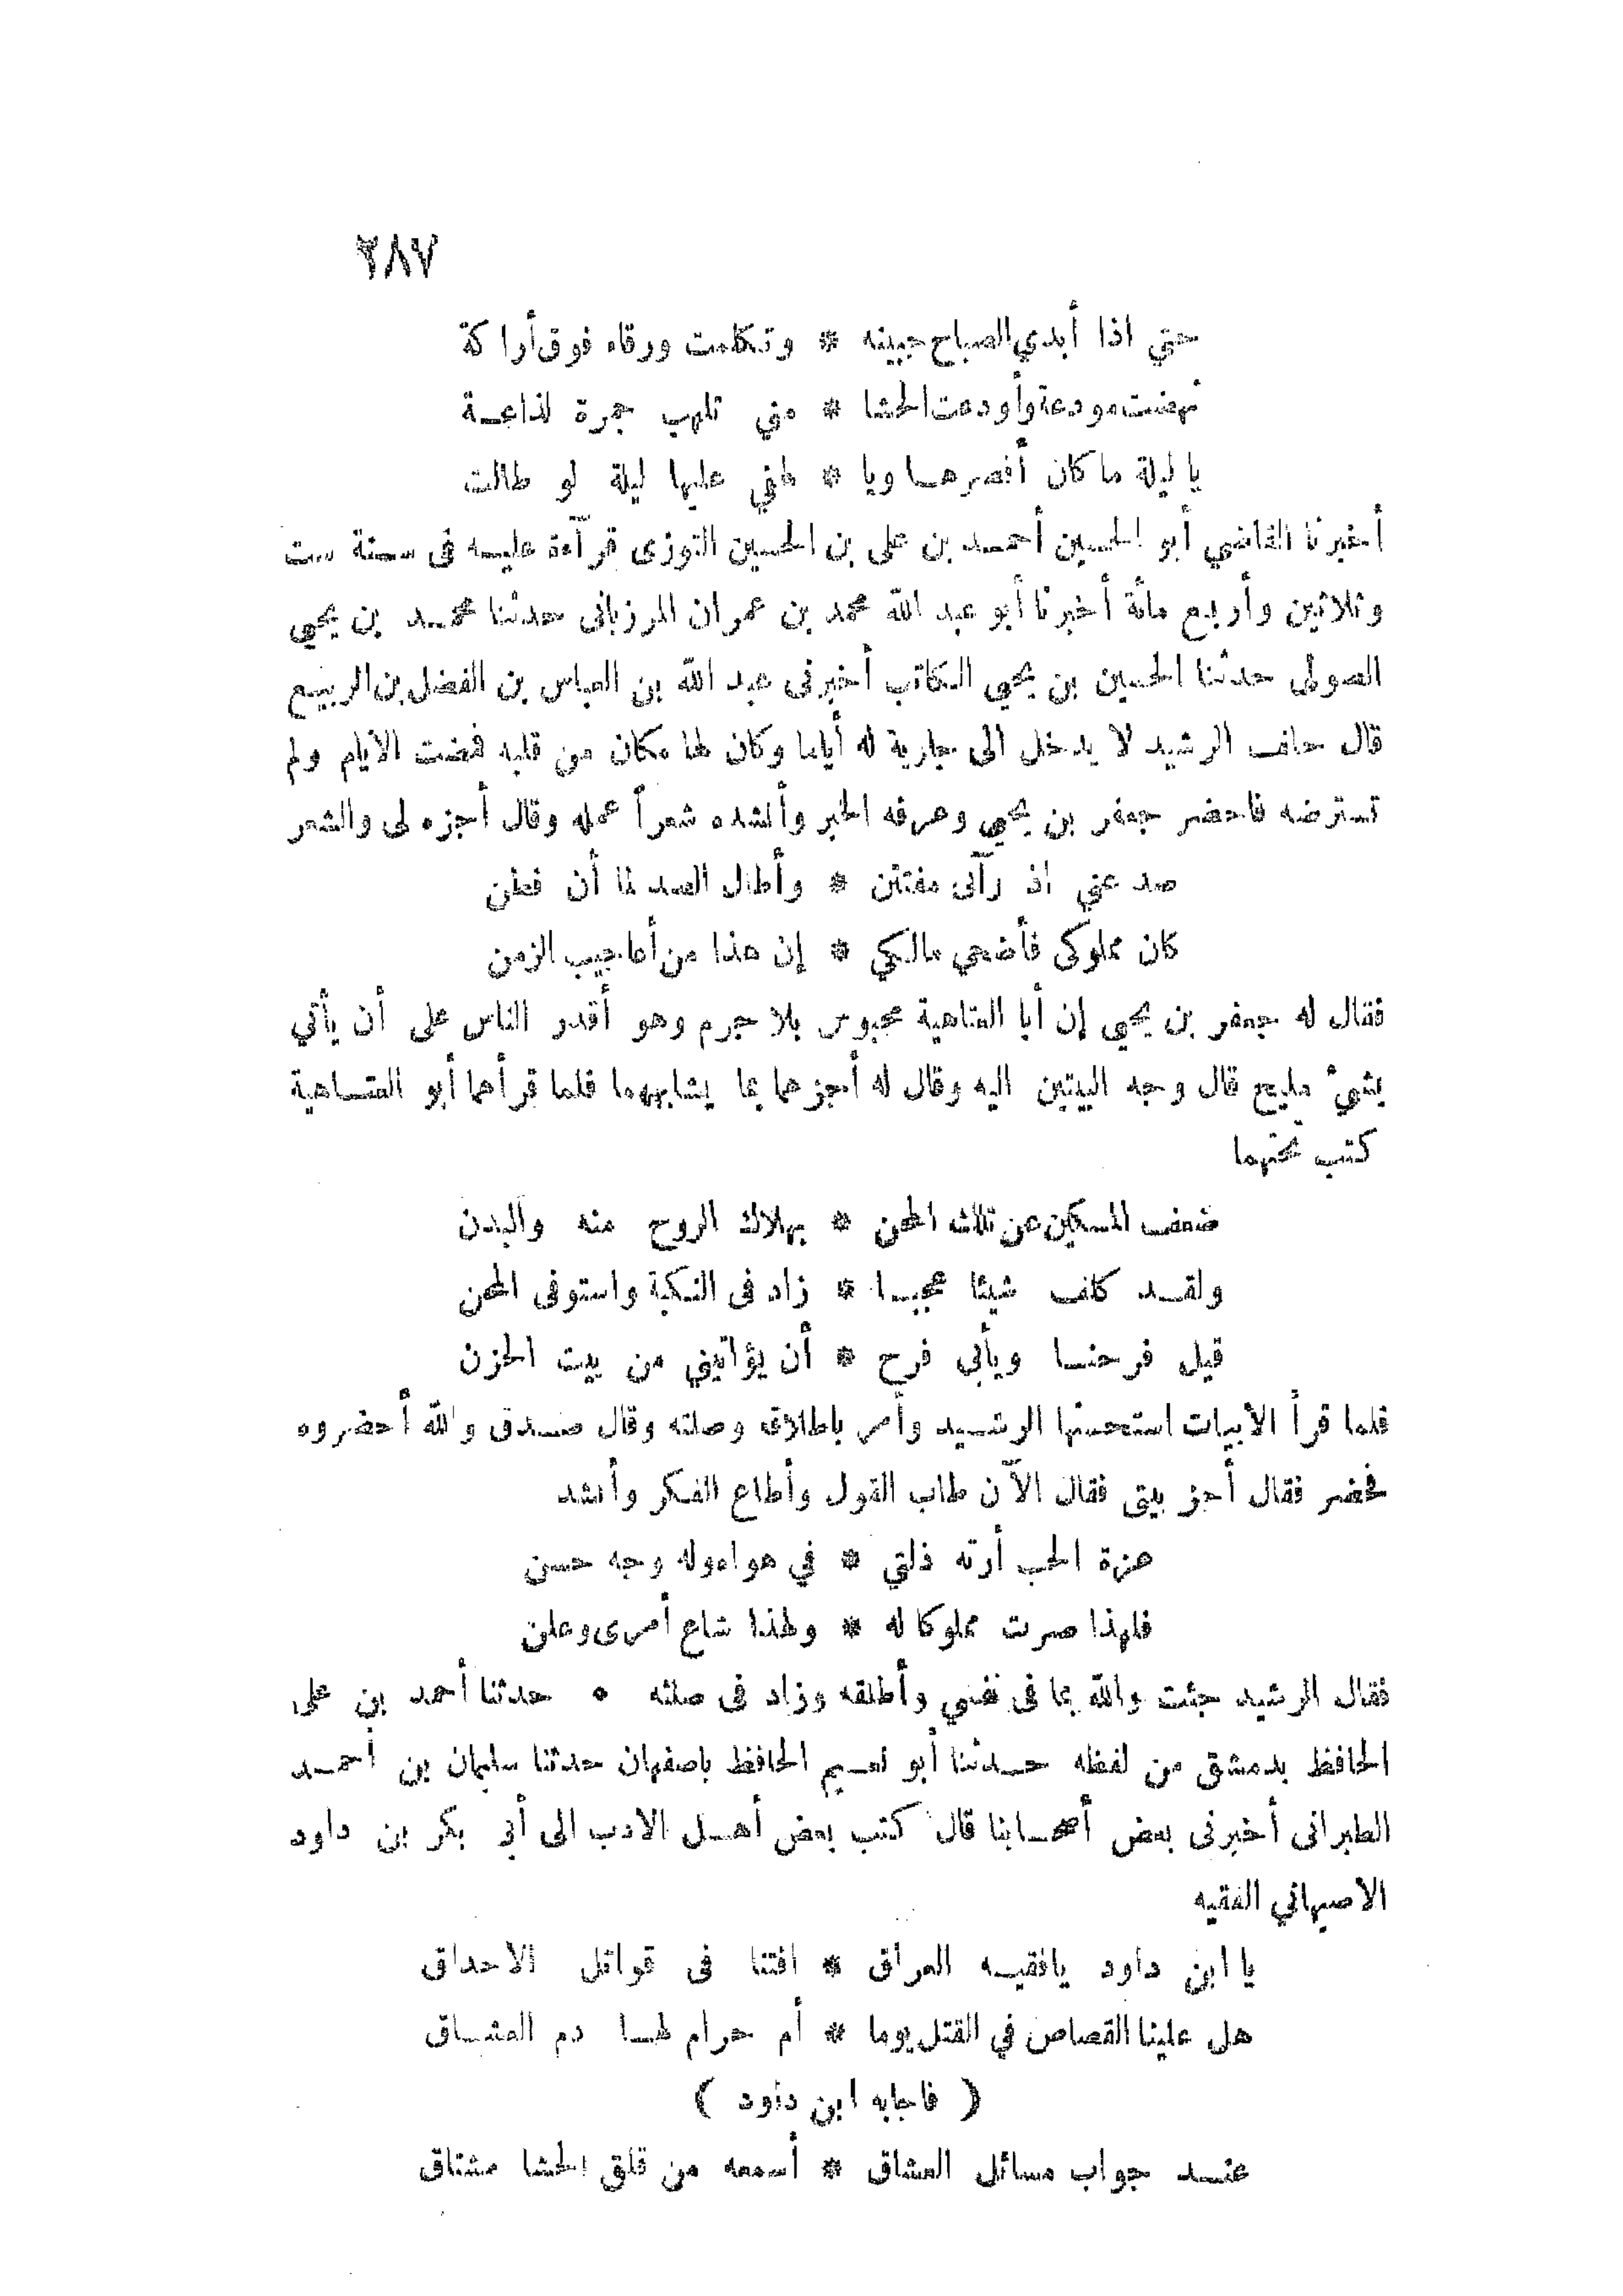 ٣٨٧
حتي اذا أبدي الصباح جبينه * وتكلمت ورقاء فوق أراكة
نهضت مودعة وأودعت الحشا * مني تلهب جمرة لذاعة
يا ليلة ما كان أقصرها ويا * لهفي عليها ليلة لو طالت
أخبرنا القاضي أبو الحسين أحمد بن على بن الحسين التوزى قرآءة عليه فى سنة ست
وثلاثين وأربع مائة أخبرنا أبو عبد الله محمد بن عمران المرزبانى حدثنا محمد بن يحيي
الصولى حدثنا الحسين بن يحيى الكاتب أخبرنى عبد الله بن العباس بن الفضل بن الربيع
قال حلف الرشيد لا يدخل الى جارية له أياما وكان لها مكان من قلبه فمضت الايام ولم
تسترضه فاحضر جعفر بن يحيي وعرفه الخبر وأنشده شعراً عمله وقال أجزه لى والشعر
صد عني اذ رآنى مفتتن * وأطال الصد لما أن فطن
كان مملوكى فأضحي مالكي * إن هذا من أعاجيب الزمن
فقال له جعفر بن يحيى إن أبا العتاهية محبوس بلا جرم وهو أقدر الناس على أن يأتي
بشيء مليح قال وجه البيتين اليه وقال له أجزهما بما يشابههما فلما قرأهما أبو العتاهية
كتب تحتهما
ضعف المسكين عن تلك المحن * بهلاك الروح منه والبدن
ولقد كلف شيئا عجيبا * زاد فى النكبة واستوفى المحن
قيل فرحنا ويأبى فرح * أن يؤاتيني من بيت الحزن
فلما قرأ الأبيات استحسنها الرشيد وأمر باطلاق وصلته وقال صدق والله أحضروه
فحضر فقال أجز بيتى فقال الآن طاب القول وأطاع الفكر وأنشد
عزة الحب أرته ذلتي * في هواه وله وجه حسن
فلهذا صرت مملوكا له * ولهذا شاع أمرى وعلن
فقال الرشيد جئت والله بما فى نفسي وأطلقه وزاد فى صلته • حدثنا أحمد بن على
الحافظ بدمشق من لفظه حدثنا أبو نعيم الحافظ باصفهان حدثنا سليمان بن أحمد
الطبرانى أخبرنى بعض أصحابنا قال كتب بعض أهل الادب الى أبي بكر بن داود
الاصبهاني الفقيه
يا ابن داود يافقيه العراق * افتنا فى قواتل الاحداق
هل علينا القصاص في القتل يوما * أم حرام لها دم العشاق
( فاجابه ابن داود )
عند جواب مسائل العشاق * أسمعه من قلق الحشا مشتاق